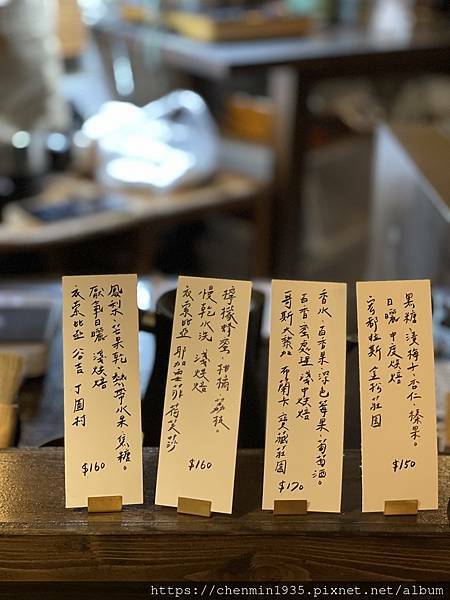 鳳梨、芒果乾、熱帶水果、焦糖。
厭氧日曬 淺烘焙
衣索比亞 谷吉 丁圖村
$160
檸檬蜂蜜、柑橘、荔枝。
慢乾水洗 淺烘焙
衣索比亞 耶加雪菲 荷芙莎
$160
香水、百香果、深色莓果、葡萄酒。
百香蜜處理 淺中烘焙
哥斯大黎加 布蘭卡 寶藏莊園
$170
黑糖、淺梅子、杏仁、榛果。
日曬 中度烘焙
宏都拉斯 金松莊園
$150
https://chenmin1935.pixnet.net/album